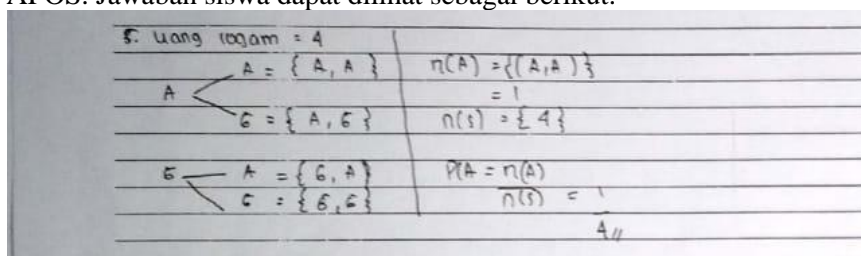 APOS. Jawaban siswa dapat dilihat sebagai berikut:
5. Uang logam = 4
A
A = { A, A }
G = { A, G }
G
A = { G, A }
G = { G, G }
n(A) = {(A,A)}
= 1
n(s) = { 4 }
P(A = n(A)
n(s)
= 1
4 //